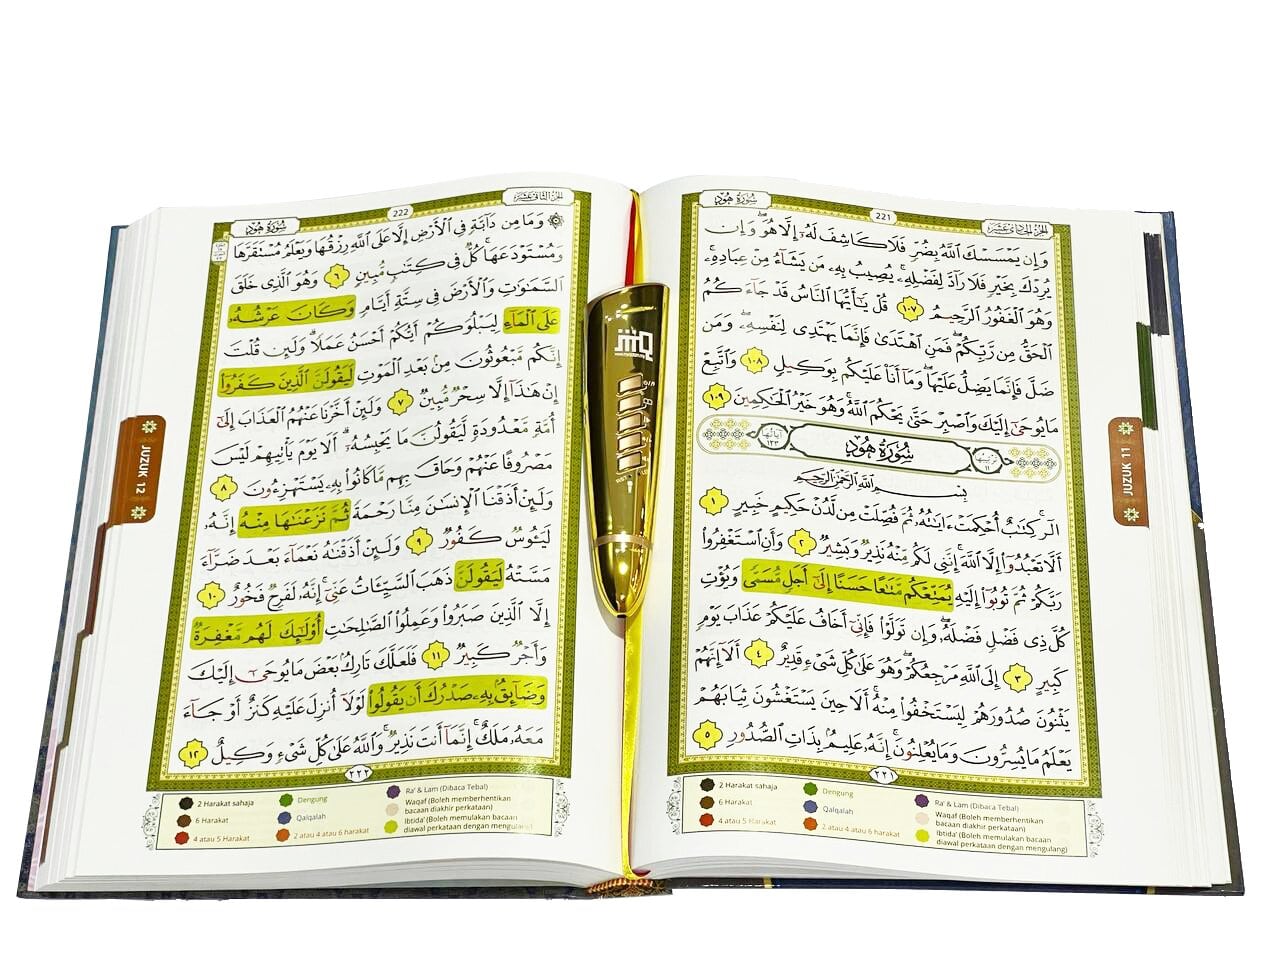 سُورَةُ هُودٍ
221
الجزء الحادي عشر
وَإِن يَمۡسَسۡكَ ٱللَّهُ بِضُرّٖ فَلَا كَاشِفَ لَهُۥٓ إِلَّا هُوَۖ وَإِن
يُرِدۡكَ بِخَيۡرٖ فَلَا رَآدَّ لِفَضۡلِهِۦۚ يُصِيبُ بِهِۦ مَن يَشَآءُ مِنۡ عِبَادِهِۦۚ
وَهُوَ ٱلۡغَفُورُ ٱلرَّحِيمُ ١٠٧ قُلۡ يَٰٓأَيُّهَا ٱلنَّاسُ قَدۡ جَآءَكُمُ
ٱلۡحَقُّ مِن رَّبِّكُمۡۖ فَمَنِ ٱهۡتَدَىٰ فَإِنَّمَا يَهۡتَدِي لِنَفۡسِهِۦۖ وَمَن
ضَلَّ فَإِنَّمَا يَضِلُّ عَلَيۡهَاۖ وَمَآ أَنَا۠ عَلَيۡكُم بِوَكِيلٖ ١٠٨ وَٱتَّبِعۡ
مَا يُوحَىٰٓ إِلَيۡكَ وَٱصۡبِرۡ حَتَّىٰ يَحۡكُمَ ٱللَّهُۚ وَهُوَ خَيۡرُ ٱلۡحَٰكِمِينَ ١٠٩
ترتيبها ١١ سُورَةُ هُودٍ آياتها ١٢٣
بِسۡمِ ٱللَّهِ ٱلرَّحۡمَٰنِ ٱلرَّحِيمِ
الٓرۚ كِتَٰبٌ أُحۡكِمَتۡ ءَايَٰتُهُۥ ثُمَّ فُصِّلَتۡ مِن لَّدُنۡ حَكِيمٍ خَبِيرٍ ١
أَلَّا تَعۡبُدُوٓاْ إِلَّا ٱللَّهَۚ إِنَّنِي لَكُم مِّنۡهُ نَذِيرٞ وَبَشِيرٞ ٢ وَأَنِ ٱسۡتَغۡفِرُواْ
رَبَّكُمۡ ثُمَّ تُوبُوٓاْ إِلَيۡهِ يُمَتِّعۡكُم مَّتَٰعًا حَسَنًا إِلَىٰٓ أَجَلٖ مُّسَمّٗى وَيُؤۡتِ
كُلَّ ذِي فَضۡلٖ فَضۡلَهُۥۖ وَإِن تَوَلَّوۡاْ فَإِنِّيٓ أَخَافُ عَلَيۡكُمۡ عَذَابَ يَوۡمٖ
كَبِيرٍ ٣ إِلَى ٱللَّهِ مَرۡجِعُكُمۡۖ وَهُوَ عَلَىٰ كُلِّ شَيۡءٖ قَدِيرٌ ٤ أَلَآ إِنَّهُمۡ
يَثۡنُونَ صُدُورَهُمۡ لِيَسۡتَخۡفُواْ مِنۡهُۚ أَلَا حِينَ يَسۡتَغۡشُونَ ثِيَابَهُمۡ
يَعۡلَمُ مَا يُسِرُّونَ وَمَا يُعۡلِنُونَۚ إِنَّهُۥ عَلِيمُۢ بِذَاتِ ٱلصُّدُورِ ٥
٢٢١
2 Harakat sahaja
6 Harakat
4 atau 5 Harakat
Dengung
Qalqalah
2 atau 4 atau 6 harakat
Ra' & Lam (Dibaca Tebal)
Waqaf (Boleh memberhentikan
bacaan diakhir perkataan)
Ibtida' (Boleh memulakan bacaan
diawal perkataan dengan mengulang)
JUZUK 11
سُورَةُ هُودٍ
222
الجزء الثاني عشر
۞ وَمَا مِن دَآبَّةٖ فِي ٱلۡأَرۡضِ إِلَّا عَلَى ٱللَّهِ رِزۡقُهَا وَيَعۡلَمُ مُسۡتَقَرَّهَا
وَمُسۡتَوۡدَعَهَاۚ كُلّٞ فِي كِتَٰبٖ مُّبِينٖ ٦ وَهُوَ ٱلَّذِي خَلَقَ
ٱلسَّمَٰوَٰتِ وَٱلۡأَرۡضَ فِي سِتَّةِ أَيَّامٖ وَكَانَ عَرۡشُهُۥ
عَلَى ٱلۡمَآءِ لِيَبۡلُوَكُمۡ أَيُّكُمۡ أَحۡسَنُ عَمَلٗاۗ وَلَئِن قُلۡتَ
إِنَّكُم مَّبۡعُوثُونَ مِنۢ بَعۡدِ ٱلۡمَوۡتِ لَيَقُولَنَّ ٱلَّذِينَ كَفَرُوٓاْ
إِنۡ هَٰذَآ إِلَّا سِحۡرٞ مُّبِينٞ ٧ وَلَئِنۡ أَخَّرۡنَا عَنۡهُمُ ٱلۡعَذَابَ إِلَىٰٓ
أُمَّةٖ مَّعۡدُودَةٖ لَّيَقُولُنَّ مَا يَحۡبِسُهُۥٓۗ أَلَا يَوۡمَ يَأۡتِيهِمۡ لَيۡسَ
مَصۡرُوفًا عَنۡهُمۡ وَحَاقَ بِهِم مَّا كَانُواْ بِهِۦ يَسۡتَهۡزِءُونَ ٨
وَلَئِنۡ أَذَقۡنَا ٱلۡإِنسَٰنَ مِنَّا رَحۡمَةٗ ثُمَّ نَزَعۡنَٰهَا مِنۡهُ إِنَّهُۥ
لَيَـُٔوسٞ كَفُورٞ ٩ وَلَئِنۡ أَذَقۡنَٰهُ نَعۡمَآءَ بَعۡدَ ضَرَّآءَ
مَسَّتۡهُ لَيَقُولَنَّ ذَهَبَ ٱلسَّيِّـَٔاتُ عَنِّيٓۚ إِنَّهُۥ لَفَرِحٞ فَخُورٌ ١٠
إِلَّا ٱلَّذِينَ صَبَرُواْ وَعَمِلُواْ ٱلصَّٰلِحَٰتِ أُوْلَٰٓئِكَ لَهُم مَّغۡفِرَةٞ
وَأَجۡرٞ كَبِيرٞ ١١ فَلَعَلَّكَ تَارِكُۢ بَعۡضَ مَا يُوحَىٰٓ إِلَيۡكَ
وَضَآئِقُۢ بِهِۦ صَدۡرُكَ أَن يَقُولُواْ لَوۡلَآ أُنزِلَ عَلَيۡهِ كَنزٌ أَوۡ جَآءَ
مَعَهُۥ مَلَكٌۚ إِنَّمَآ أَنتَ نَذِيرٞۚ وَٱللَّهُ عَلَىٰ كُلِّ شَيۡءٖ وَكِيلٌ ١٢
٢٢٢
2 Harakat sahaja
6 Harakat
4 atau 5 Harakat
Dengung
Qalqalah
2 atau 4 atau 6 harakat
Ra' & Lam (Dibaca Tebal)
Waqaf (Boleh memberhentikan
bacaan diakhir perkataan)
Ibtida' (Boleh memulakan bacaan
diawal perkataan dengan mengulang)
JUZUK 12